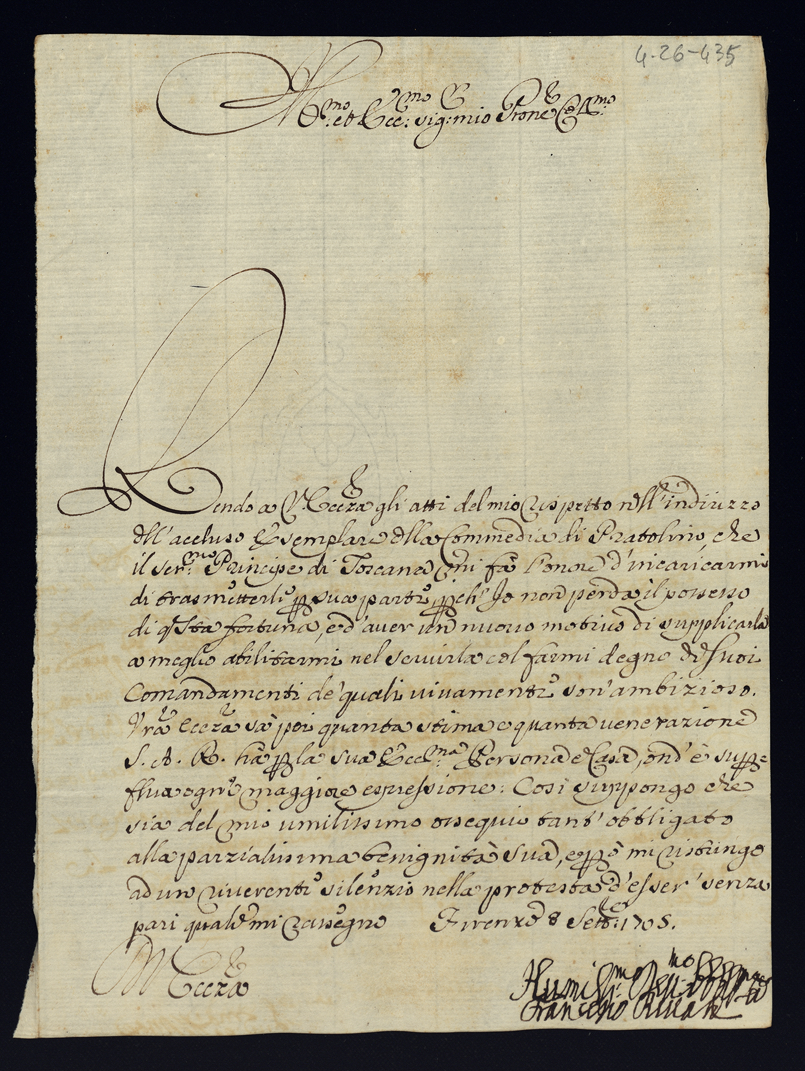 4-26-435
Ill.mo et Ecc.mo Sig: mio Prone Col.mo
Rendo a V. Ecc.za gli atti del mio rispetto nell'indirizzo
dll'accluso Esemplare dlla Commedia di Pratolino, che
il Ser.mo Principe di Toscana mi fà l'onore d'incaricarmi
di trasmetterle p sua parte, pche Io non perda il possesso
di qsta fortuna, e d'aver un nuovo motivo di supplicarla
a meglio abilitarmi nel servirla col farmi degno de suoi
Comandamenti de quali vivamente son'ambizioso.
Vra Ecc.za sà poi quanta stima e quanta venerazione
S. A. R. ha p la sua Ecc.ma Persona e Casa, ond'è supp=
flua ogni maggiore espressione: Così suppongo che
sia del mio umilissimo ossequio tant'obbligato
alla parzialissima benignità sua, e pò mi ristringo
ad un riverente silenzio nella protesta d'esser' senza
pari quale mi rassegno Firenze 8 Setter 1705.
V Ecc.za
Humiliss.mo
Francesco